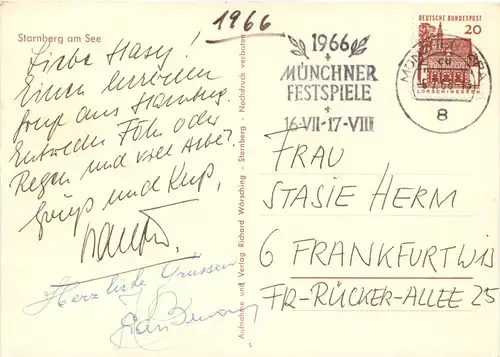 1966
Starnberg am See
Liebe Stasy!
Einen
aus Starnberg.
Entweder Föhn oder
Regen und viel Arbeit.
Gruß und Kuß,
Herzliche Grüssen
Aufnahme und Verlag Richard Wörsching - Starnberg - Nachdruck verboten
1966
+
MÜNCHNER
FESTSPIELE
+
16-VII-17-VIII
DEUTSCHE BUNDESPOST
20
LORSCH/HESSEN
8
FRAU
STASIE HERM
6 FRANKFURT
FR-RÜCKER-ALLEE 25